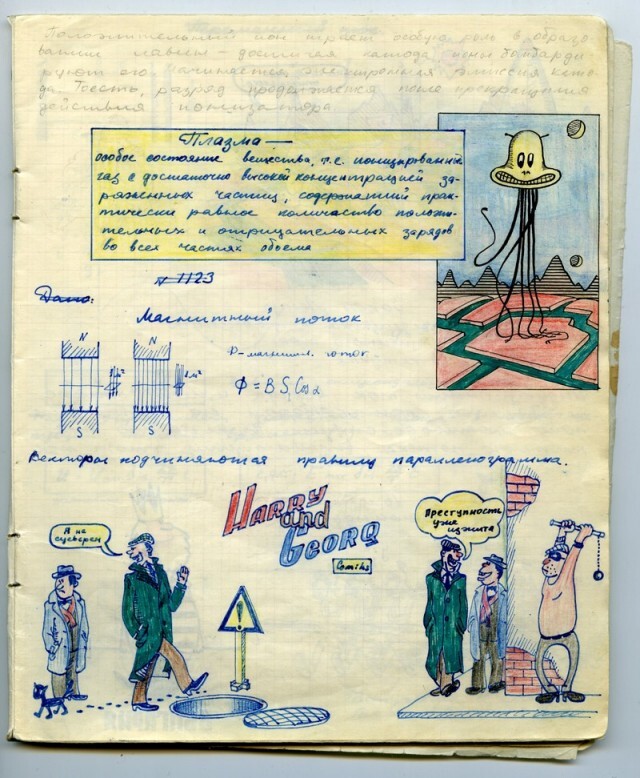 Положительный ион играет особую роль в образо-
вании лавины – достигая катода, ионы бомбарди
руют его начинается электронная эмиссия като
да. Тоесть, разряд продолжается после прекращения
действия ионизатора
Плазма —
особое состояние вещества, т.е. ионизированный
газ с достаточно высокой концентрацией за-
ряженных частиц, содержащий прак-
тически равное количество положи-
тельных и отрицательных зарядов
во всех частях объема
№ 1123
Дано:
Магнитный поток
N N
Ф – магнитн. поток
Ф = B S Cos α
S S
Векторы подчиняются правилу параллелограмма.
HARRY
and
GEORQ
Comiks
Я не
суеверен
Преступность
уже
изжита